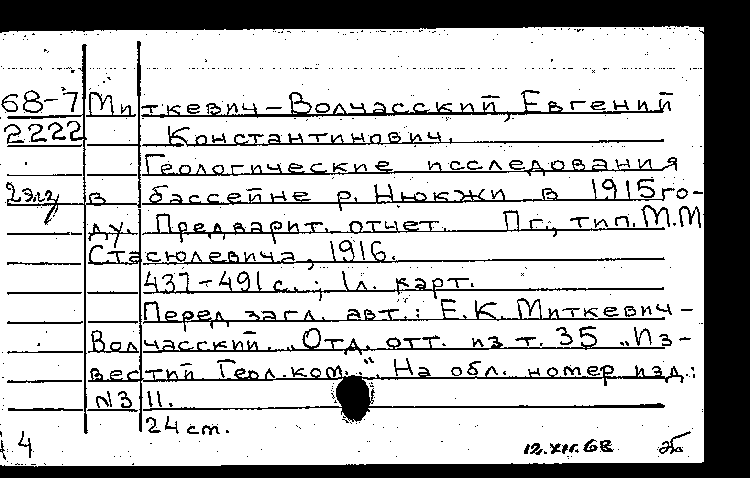 68-7 Миткевич-Волчасский, Евгений
2222 Константинович.
Геологические исследования
2 экз в бассейне р. Нюкжи в 1915 го-
ду. Предварит. отчет. Пг., тип. М.М
Стасюлевича, 1916.
437-491 с.; 1 л. карт.
Перед загл. авт.: Е.К. Миткевич-
Волчасский. "Отд. отт. из т. 35 "Из-
вестий Геол. ком.". На обл. номер изд.:
N311.
24 см.
4 12.XII.68